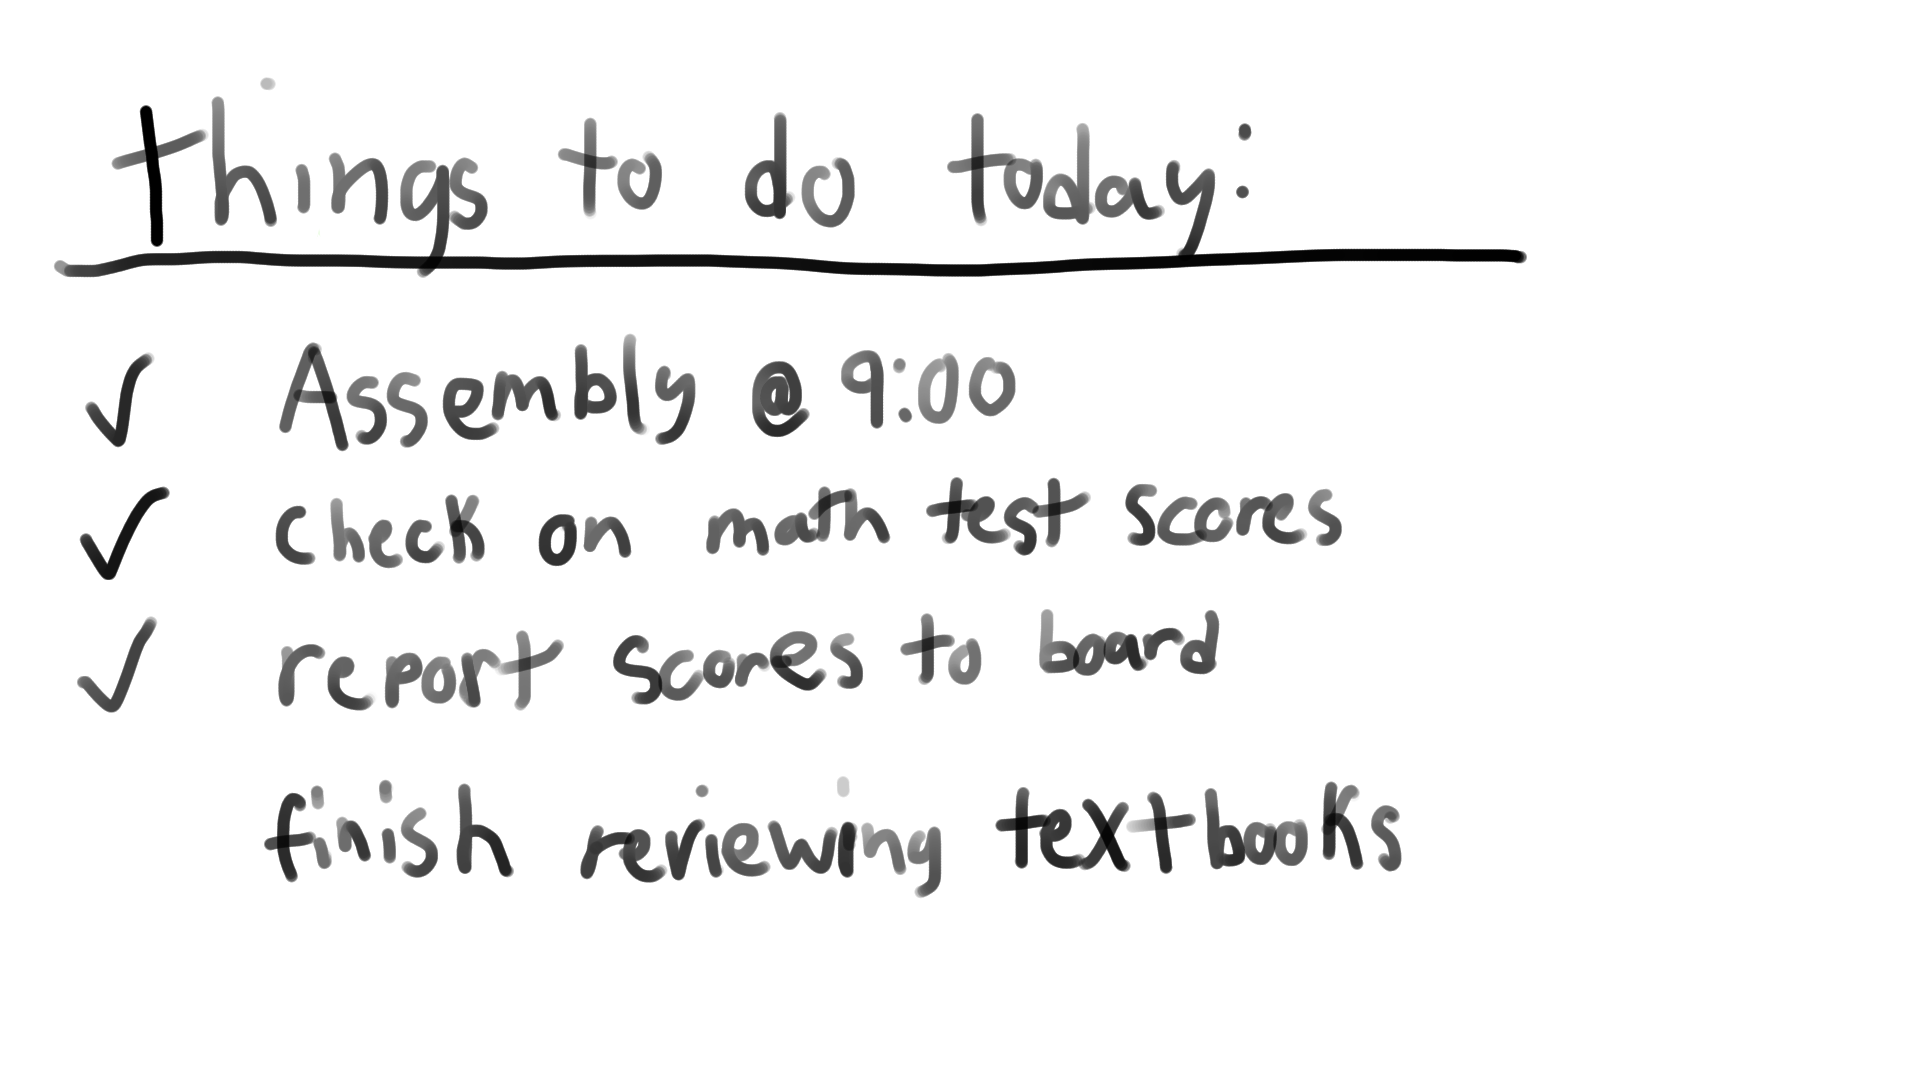 things to do today:
✓ Assembly @ 9:00
✓ check on math test scores
✓ report scores to board
finish reviewing textbooks